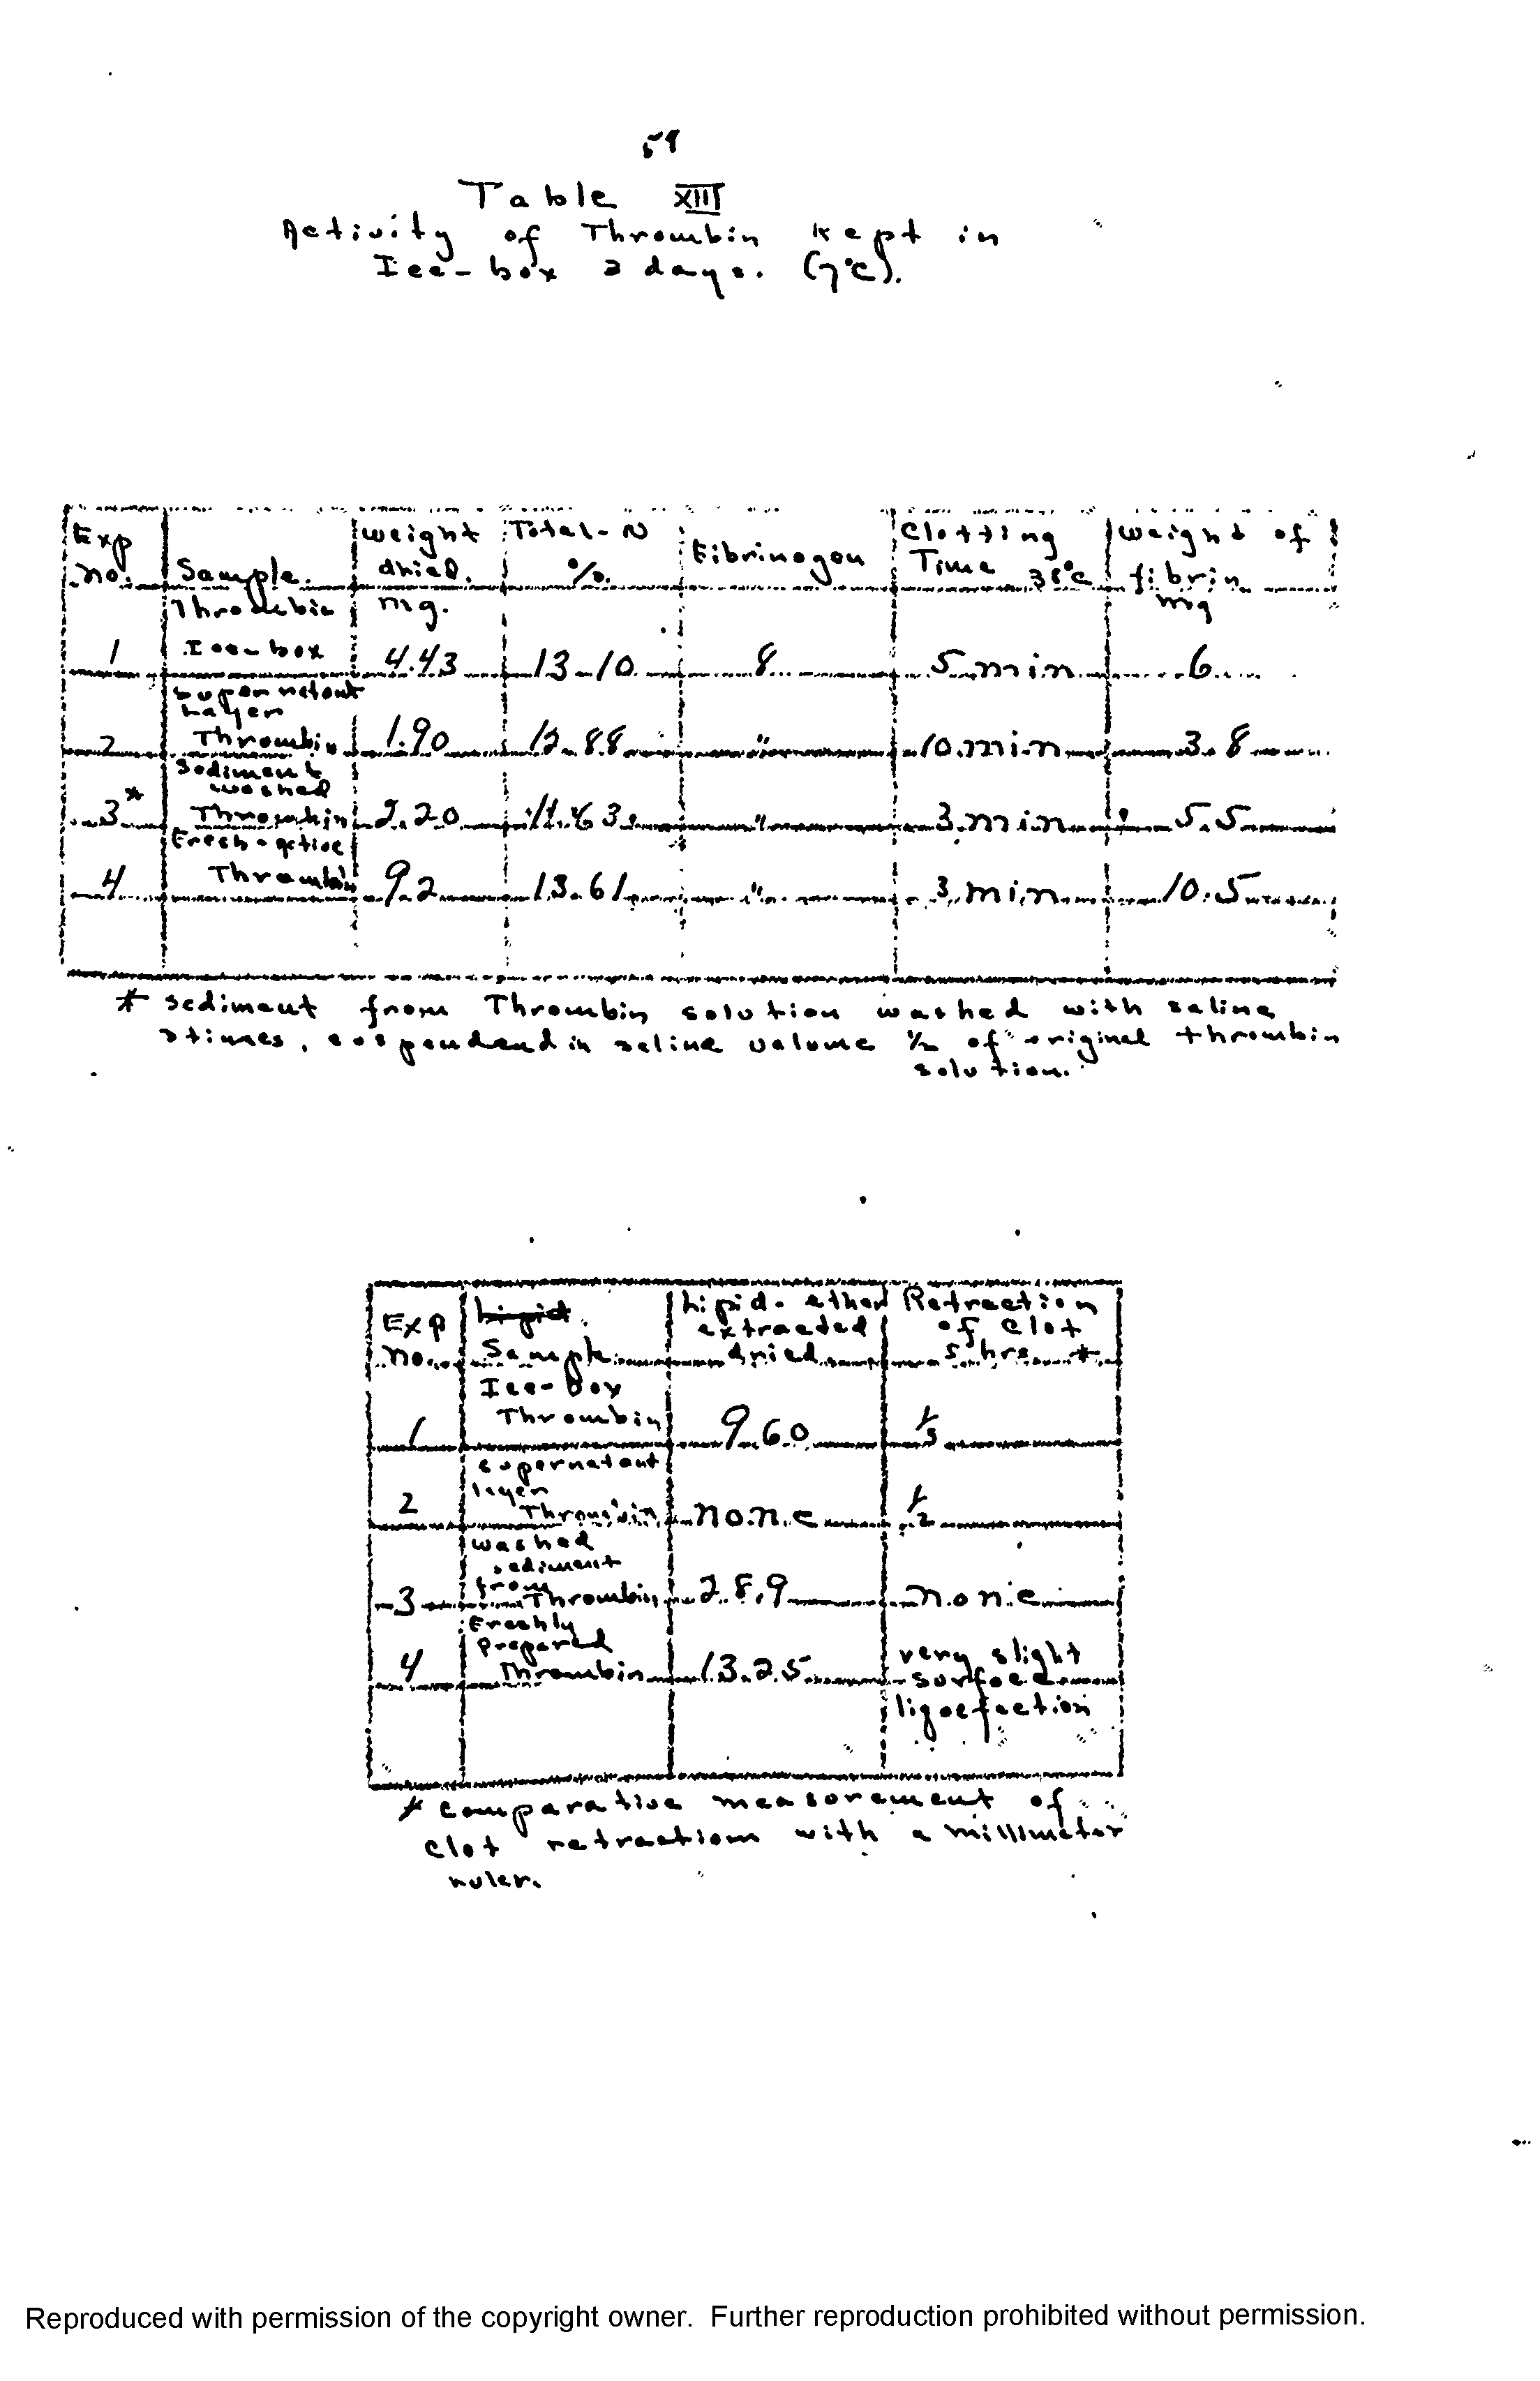 59
Table XIII
Activity of Thrombin kept in
Ice-box 2 days. (7°C).
Exp no. Sample. weight dried. mg. Total-N %. Fibrinogen Clotting Time 38°C weight of fibrin mg
1 Thrombin Ice-box 4.43 13.10 8 5 min 6
2 Supernatant Layer Thrombin 1.90 12.88 " 10 min 3.8
3* Sediment washed Thrombin 2.20 11.63 " 3 min 5.5
4 Fresh-active Thrombin 9.2 13.61 " 3 min 10.5
* sediment from Thrombin solution washed with saline
2 times, suspended in saline volume 1/2 of original thrombin
solution.
Exp no. Lipid Sample Lipid-ether extracted dried Retraction of Clot 5 hrs *
1 Ice-box Thrombin 9.60 1/3
2 supernatant layer Thrombin none 1/2
3 washed sediment from Thrombin 28.9 none
4 Freshly Prepared Thrombin 13.25 very slight surface liquefection
* comparative measurement of
clot retraction with a millimeter
ruler.
Reproduced with permission of the copyright owner. Further reproduction prohibited without permission.